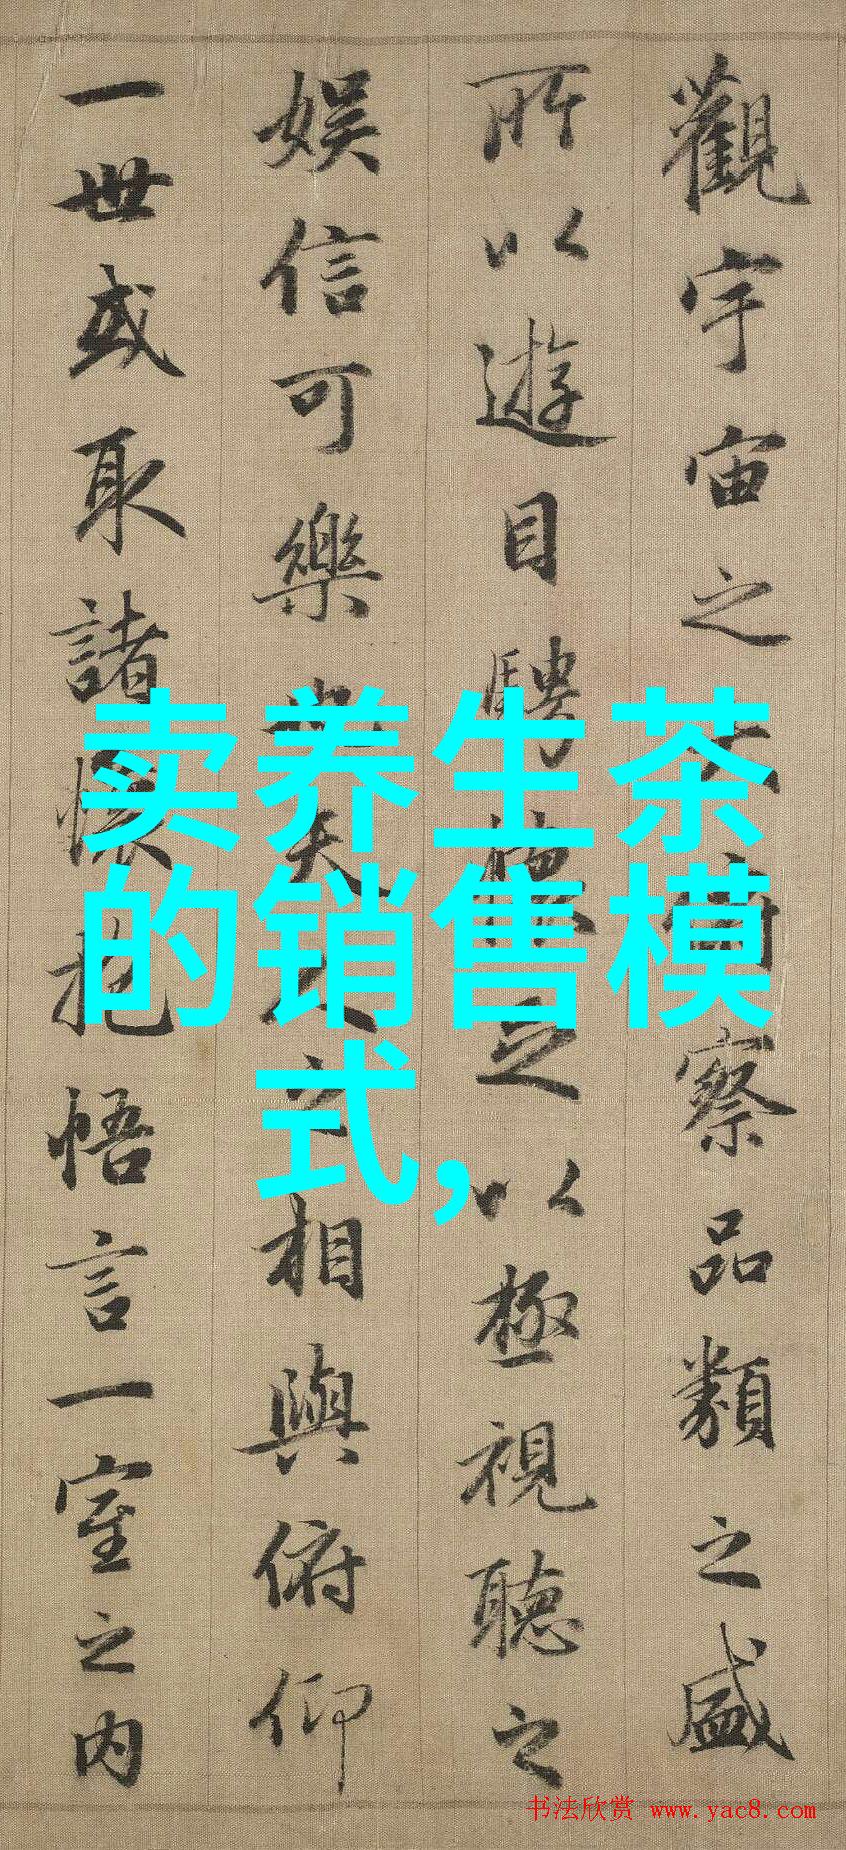 觀宇宙之大俯察品類之盛
所以遊目騁懷足以極視聽之
娛信可樂也夫人之相與俯仰
一世或取諸懷抱悟言一室之内
卖养生茶
的销售模
式,
书法欣赏 www.yac8.com